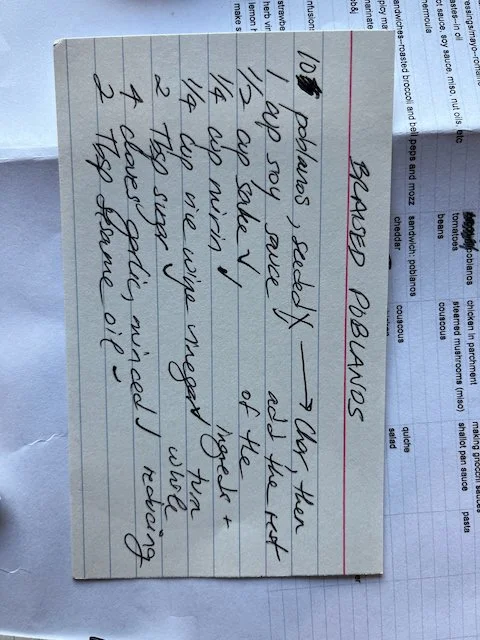 BRAISED POBLANOS
10 poblanos, seeded → Char then
1 cup soy sauce add the rest
1/2 cup sake of the
1/4 cup mirin ingreds +
1/4 cup rice wine vinegar turn
2 Tbsp sugar while
4 cloves garlic, minced reducing
2 Tbsp sesame oil
making gnocchi sauces
shallot pan sauce pasta
poblanos chicken in parchment
tomatoes steamed mushrooms (miso)
beans couscous
quiche
salad
sandwich: poblanos couscous
cheddar
essings/mayo--romaine
astes--in oil
ot sauce, soy sauce, miso, nut oils, etc
hermoula
andwiches--roasted broccoli and bell peps and mozz
marinate
ob&j
nfusions
strawbe
herb vin
lemon
make s